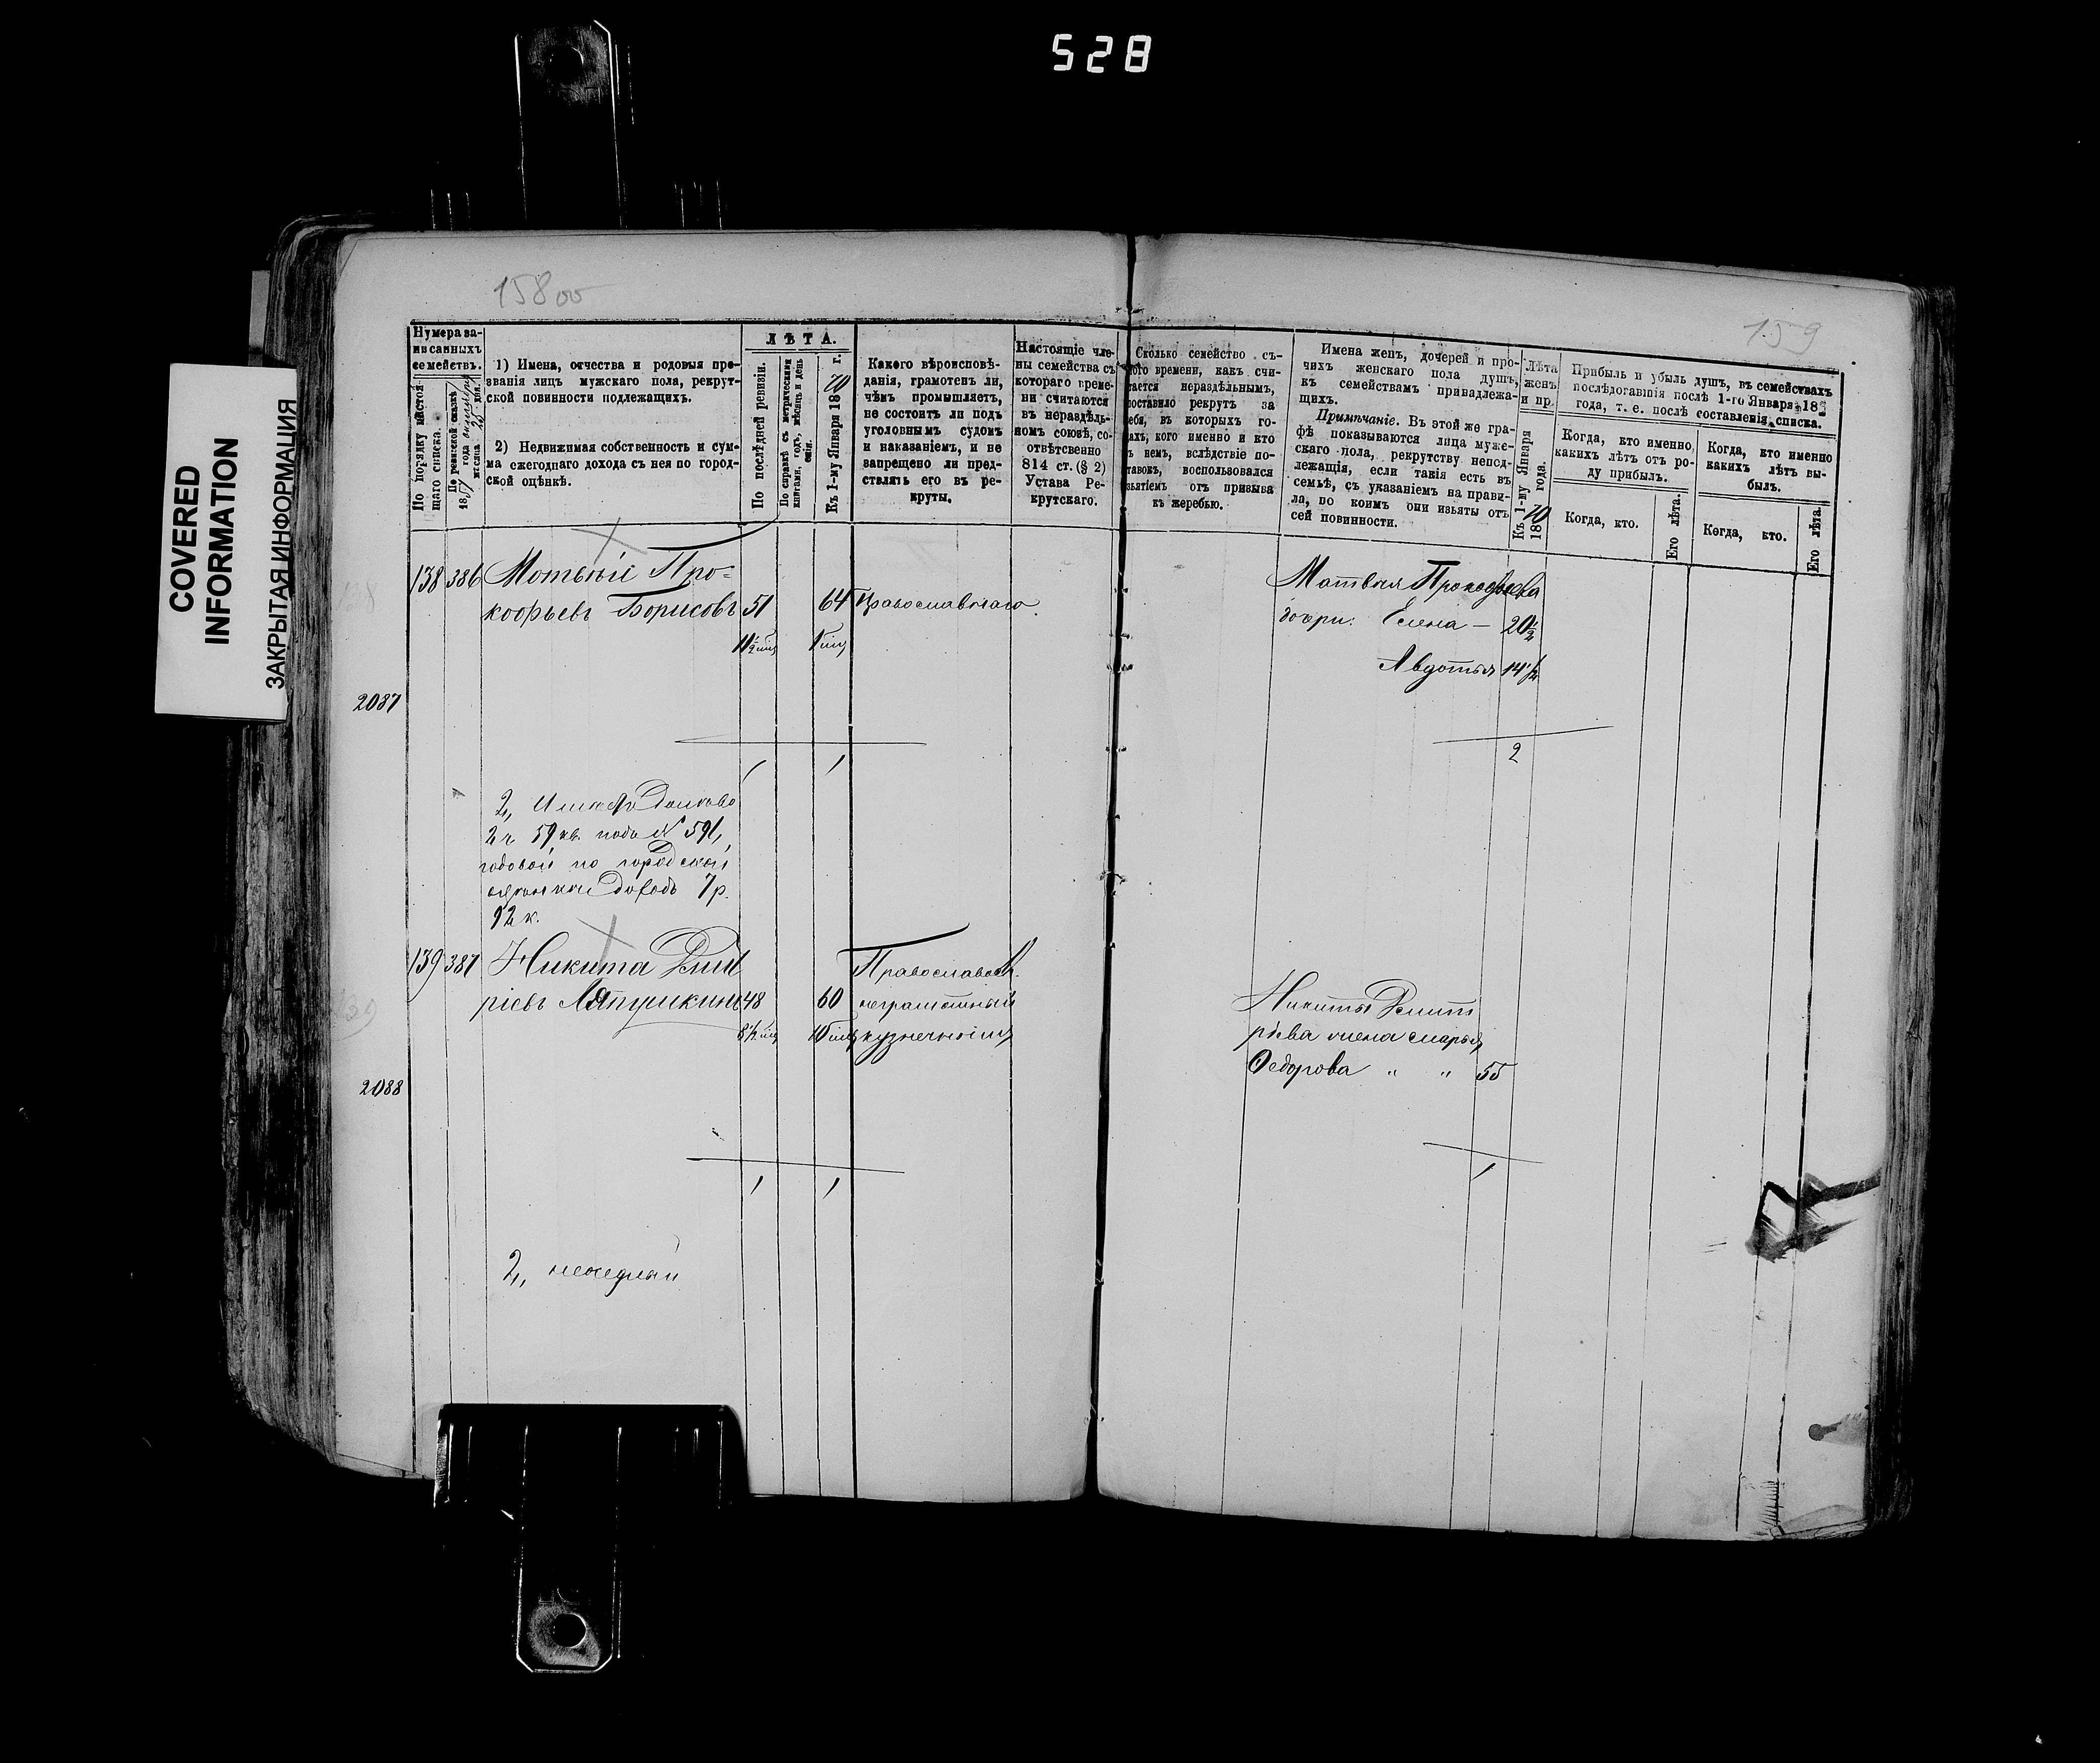 528
COVERED
INFORMATION
ЗАКРЫТАЯ ИНФОРМАЦИЯ
158об
159
Нумера за-
писанныхъ
семействъ.
По порядку настоя-
щаго списка.
По ревизской сказкѣ
1857 года
1) Имена, отчества и родовыя про-
званія лицъ мужскаго пола, рекрут-
ской повинности подлежащихъ.
2) Недвижимая собственность и сум-
ма ежегоднаго дохода съ нея по город-
ской оцѣнкѣ.
ЛѢТА.
По послѣдней ревизіи.
По справкѣ съ метрическими
книгами, годъ, мѣсяцъ и день
Къ 1-му Января 1870 г.
Какого вѣроисповѣ-
данія, грамотенъ ли,
чѣмъ промышляетъ,
не состоитъ ли подъ
уголовнымъ судомъ
и наказаніемъ, и не
запрещено ли пред-
ставлять его въ ре-
круты.
Настоящіе чле-
ны семейства съ
котораго време-
ни считаются
въ нераздѣль-
номъ союзѣ, со-
отвѣтственно
814 ст. (§ 2)
Устава Ре-
крутскаго.
Сколько семейство съ
того времени, какъ счи-
тается нераздѣльнымъ,
поставило рекрутъ за
себя, въ которыхъ го-
дахъ, кого именно и кто
въ немъ, вслѣдствіе по-
ставокъ, воспользовался
изъятіемъ отъ призыва
къ жеребью.
Имена женъ, дочерей и про-
чихъ женскаго пола душъ,
къ семействамъ принадлежа-
щихъ.
Примѣчаніе. Въ этой же гра-
фѣ показываются лица муже-
скаго пола, рекрутству непод-
лежащія, если такія есть въ
семьѣ, съ указаніемъ на прави-
ла, по коимъ они изъяты отъ
сей повинности.
Лѣта
женъ
и пр.
Къ 1-му Января
1870 года.
Прибыль и убыль душъ, въ семействахъ
послѣдовавшія послѣ 1-го Января 18
года, т. е. послѣ составленія списка.
Когда, кто именно
какихъ лѣтъ отъ ро-
ду прибылъ.
Когда, кто именно
какихъ лѣтъ вы-
былъ.
Когда, кто.
Его лѣта.
Когда, кто.
Его лѣта.
138 386 Матвѣй Про-
кофьевъ Борисовъ 51 64 Православнаго
Матвѣя Прокофьева
дочери: Елена — 20½
Авдотья 14½
2087
1 1
2
2,
2 ч 59 кв. подъ № 591,
годовой по городской
оцѣнкѣ доходъ 7 р.
92 к.
139 387 Никита Дмит
ріевъ Ляпушкинъ 48 60
Православн.
неграмотный
Никиты Дмит
ріева жена Марья
Федорова " " 55
2088
1 1
1
2,